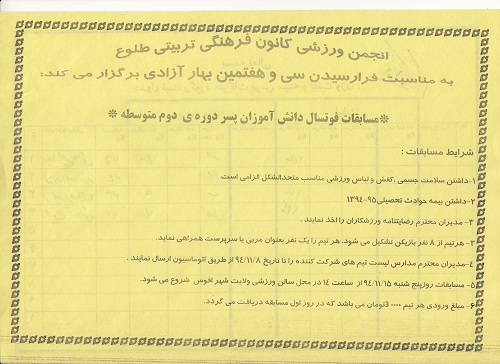 انجمن ورزشی کانون فرهنگی تربیتی طلوع
به مناسبت فرارسیدن سی و هفتمین بهار آزادی برگزار می کند:
* مسابقات فوتسال دانش آموزان پسر دوره ی دوم متوسطه *
شرایط مسابقات :
۱-داشتن سلامت جسمی ،کفش و لباس ورزشی مناسب متحدالشکل الزامی است.
۲-داشتن بیمه حوادث تحصیلی۹۵-۱۳۹۴
۳- مدیران محترم رضایتنامه ورزشکاران را اخذ نمایند .
۳-هرتیم از ۸ نفر بازیکن تشکیل می شود. هر تیم را یک نفر بعنوان مربی یا سرپرست همراهی نماید.
۴-مدیران محترم مدارس لیست تیم های شرکت کننده را تا تاریخ ۹۴/۱۱/۸ از طریق اتوماسیون ارسال نمایند .
۵-مسابقات روزپنج شنبه ۹۴/۱۱/۱۵ از ساعت ۱۴ در محل سالن ورزشی ولایت شهر افوس شروع می شود.
۶-مبلغ ورودی هر تیم ۳۰۰۰۰تومان می باشد که در روز اول مسابقه دریافت می گردد.